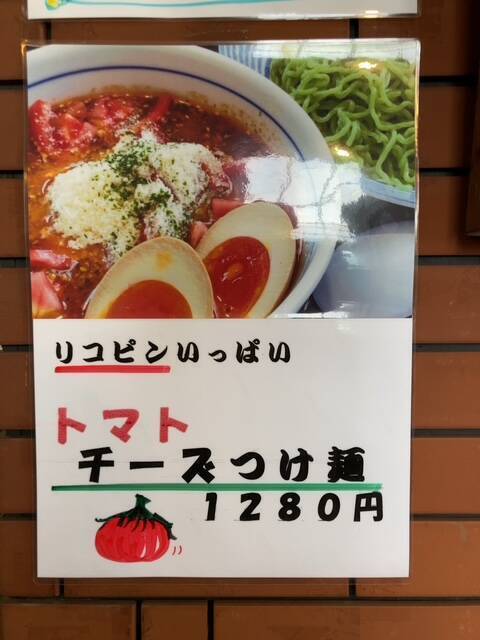 リコピンいっぱい
トマト
チーズつけ麺
1280円